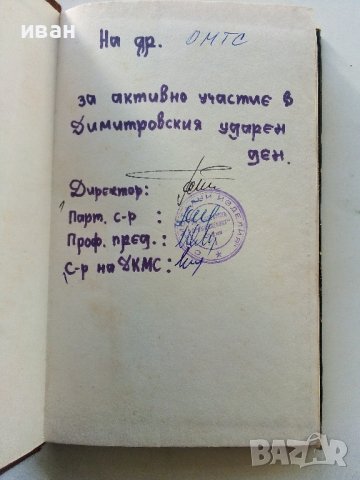 иван
На др. ОМТС
за активно участие в
Димитровския ударен
ден.
Директор:
Парт. с-р :
Проф. пред. :
С-р на ДКМС :
ИЗДЕЛИЯ
BAZAR